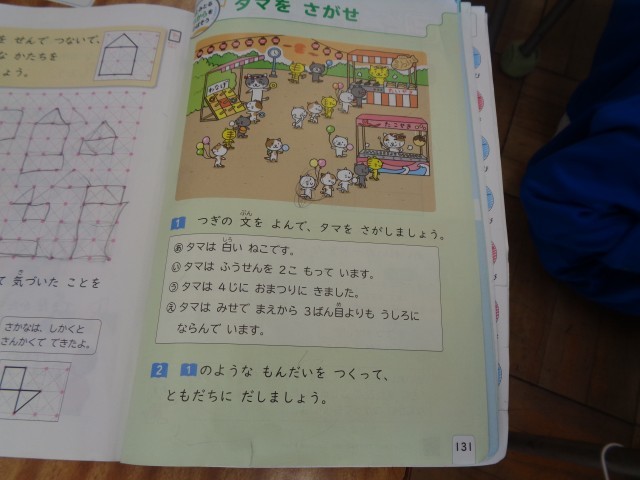 を せんで つないで、
な かたちを
しょう。
て 気づいた ことを
さかなは、しかくと
さんかくで できたよ。
タマを さがせ
わなげ
たこやき
1 つぎの 文を よんで、タマを さがしましょう。
あ タマは 白い ねこです。
い タマは ふうせんを 2こ もって います。
う タマは 4じに おまつりに きました。
え タマは みせで まえから 3ばん目よりも うしろに
ならんで います。
2 1のような もんだいを つくって、
ともだちに だしましょう。
131